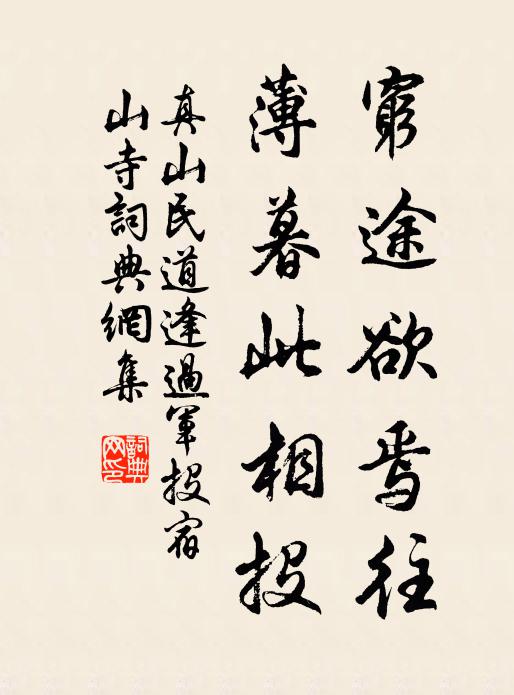 窮途欲焉往
薄暮此相投
真山民道逢過軍投宿
山寺詞典網集
詞典网印